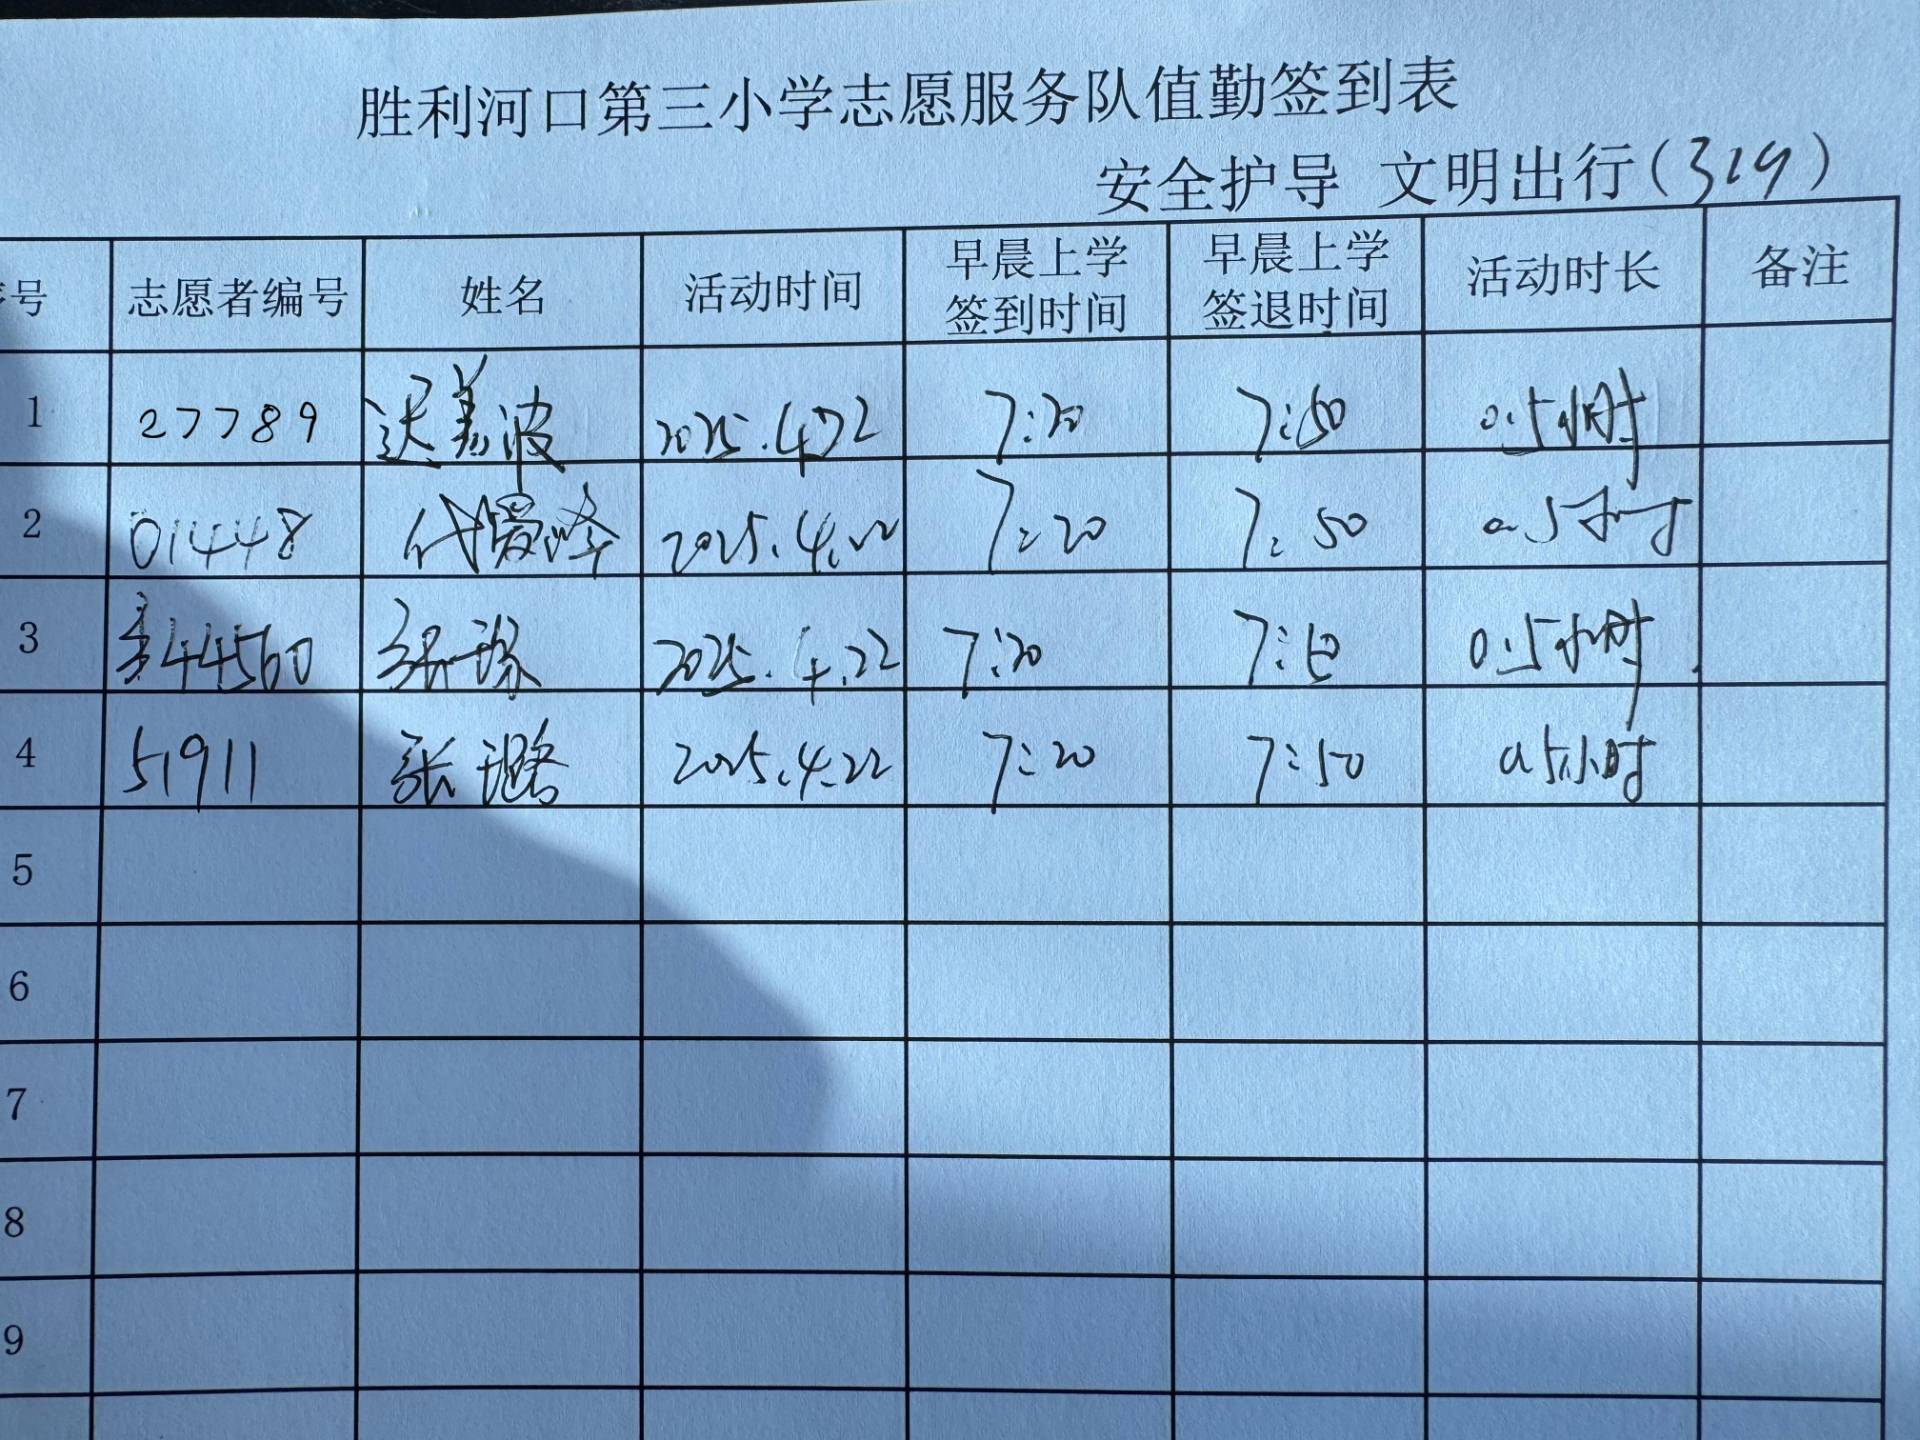 胜利河口第三小学志愿服务队值勤签到表
安全护导 文明出行(319)
号 志愿者编号 姓名 活动时间 早晨上学签到时间 早晨上学签退时间 活动时长 备注
1 27789 美波 2025.4.22 7:20 7:50 0.5小时
2 01448 代爱峰 2025.4.22 7:20 7:50 0.5小时
3 44560 张 2025.4.22 7:20 7:50 0.5小时
4 51911 张璐 2025.4.22 7:20 7:50 0.5小时
5
6
7
8
9